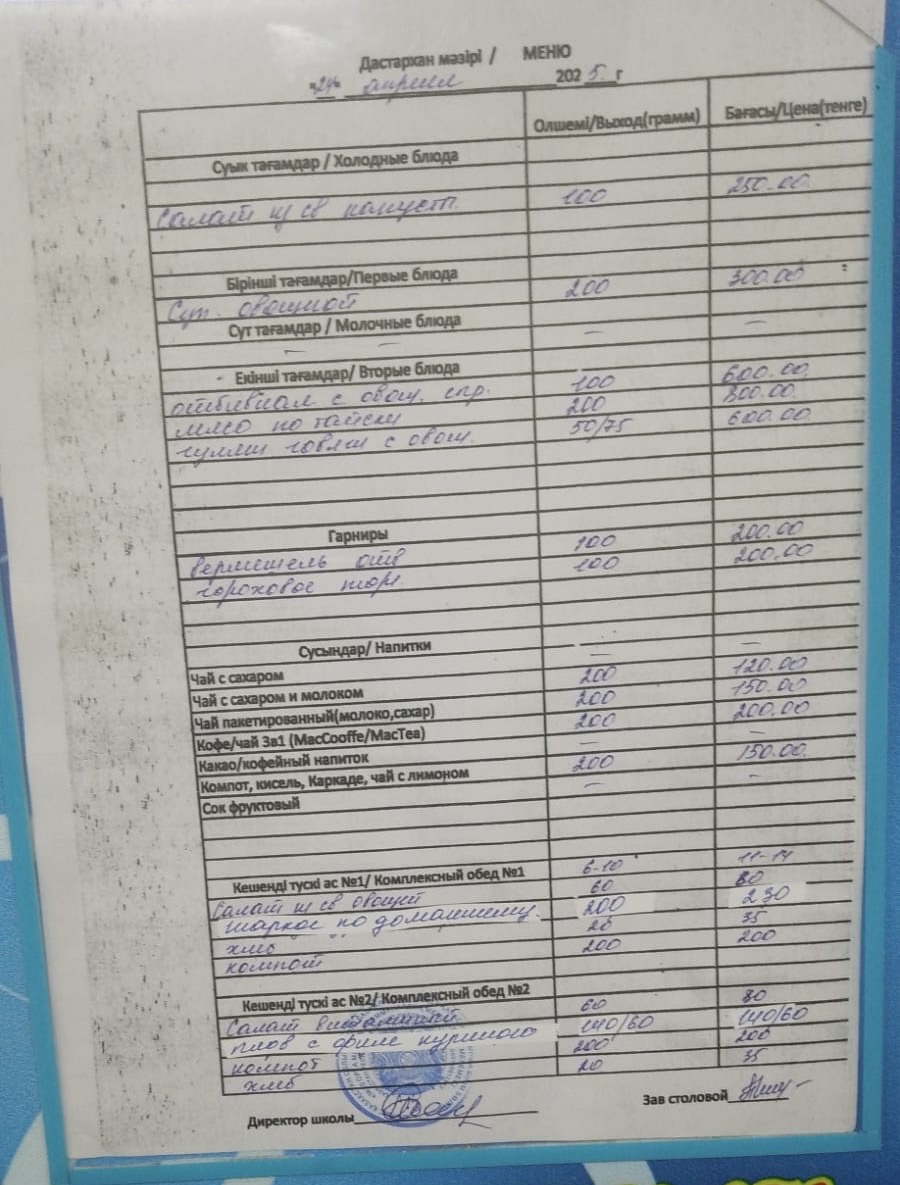 Дастархан мәзірі / МЕНЮ
"24" апреля 2025 г
Өлшемі/Выход(грамм) Бағасы/Цена(тенге)
Суық тағамдар / Холодные блюда
Салат из св капусты 100 250.00
Бірінші тағамдар/Первые блюда
Суп овощной 200 300.00
Сут тағамдар / Молочные блюда
— — — —
Екінші тағамдар/ Вторые блюда
с овощ. 100 600.00
мясо по тайски 200 800.00
гуляш говяж с овощ. 50/75 600.00
Гарниры
вермишель отв 100 200.00
гороховое пюре 100 200.00
Сусындар/ Напитки
Чай с сахаром — —
Чай с сахаром и молоком 200 120.00
Чай пакетированный(молоко,сахар) 200 150.00
Кофе/чай 3в1 (MacCooffe/MacTea) 200 200.00
Какао/кофейный напиток — —
Компот, кисель, Каркаде, чай с лимоном 200 150.00
Сок фруктовый — —
Кешенді тускі ас №1/ Комплексный обед №1 6-10 11-14
Салат из св овощей 60 80
жаркое по домашнему. 200 230
хлеб 20 35
компот 200 200
Кешенді тускі ас №2/ Комплексный обед №2
Салат витаминный 60 80
плов с филе куриного 140/60 140/60
компот 200 200
хлеб 20 35
Директор школы
Зав столовой